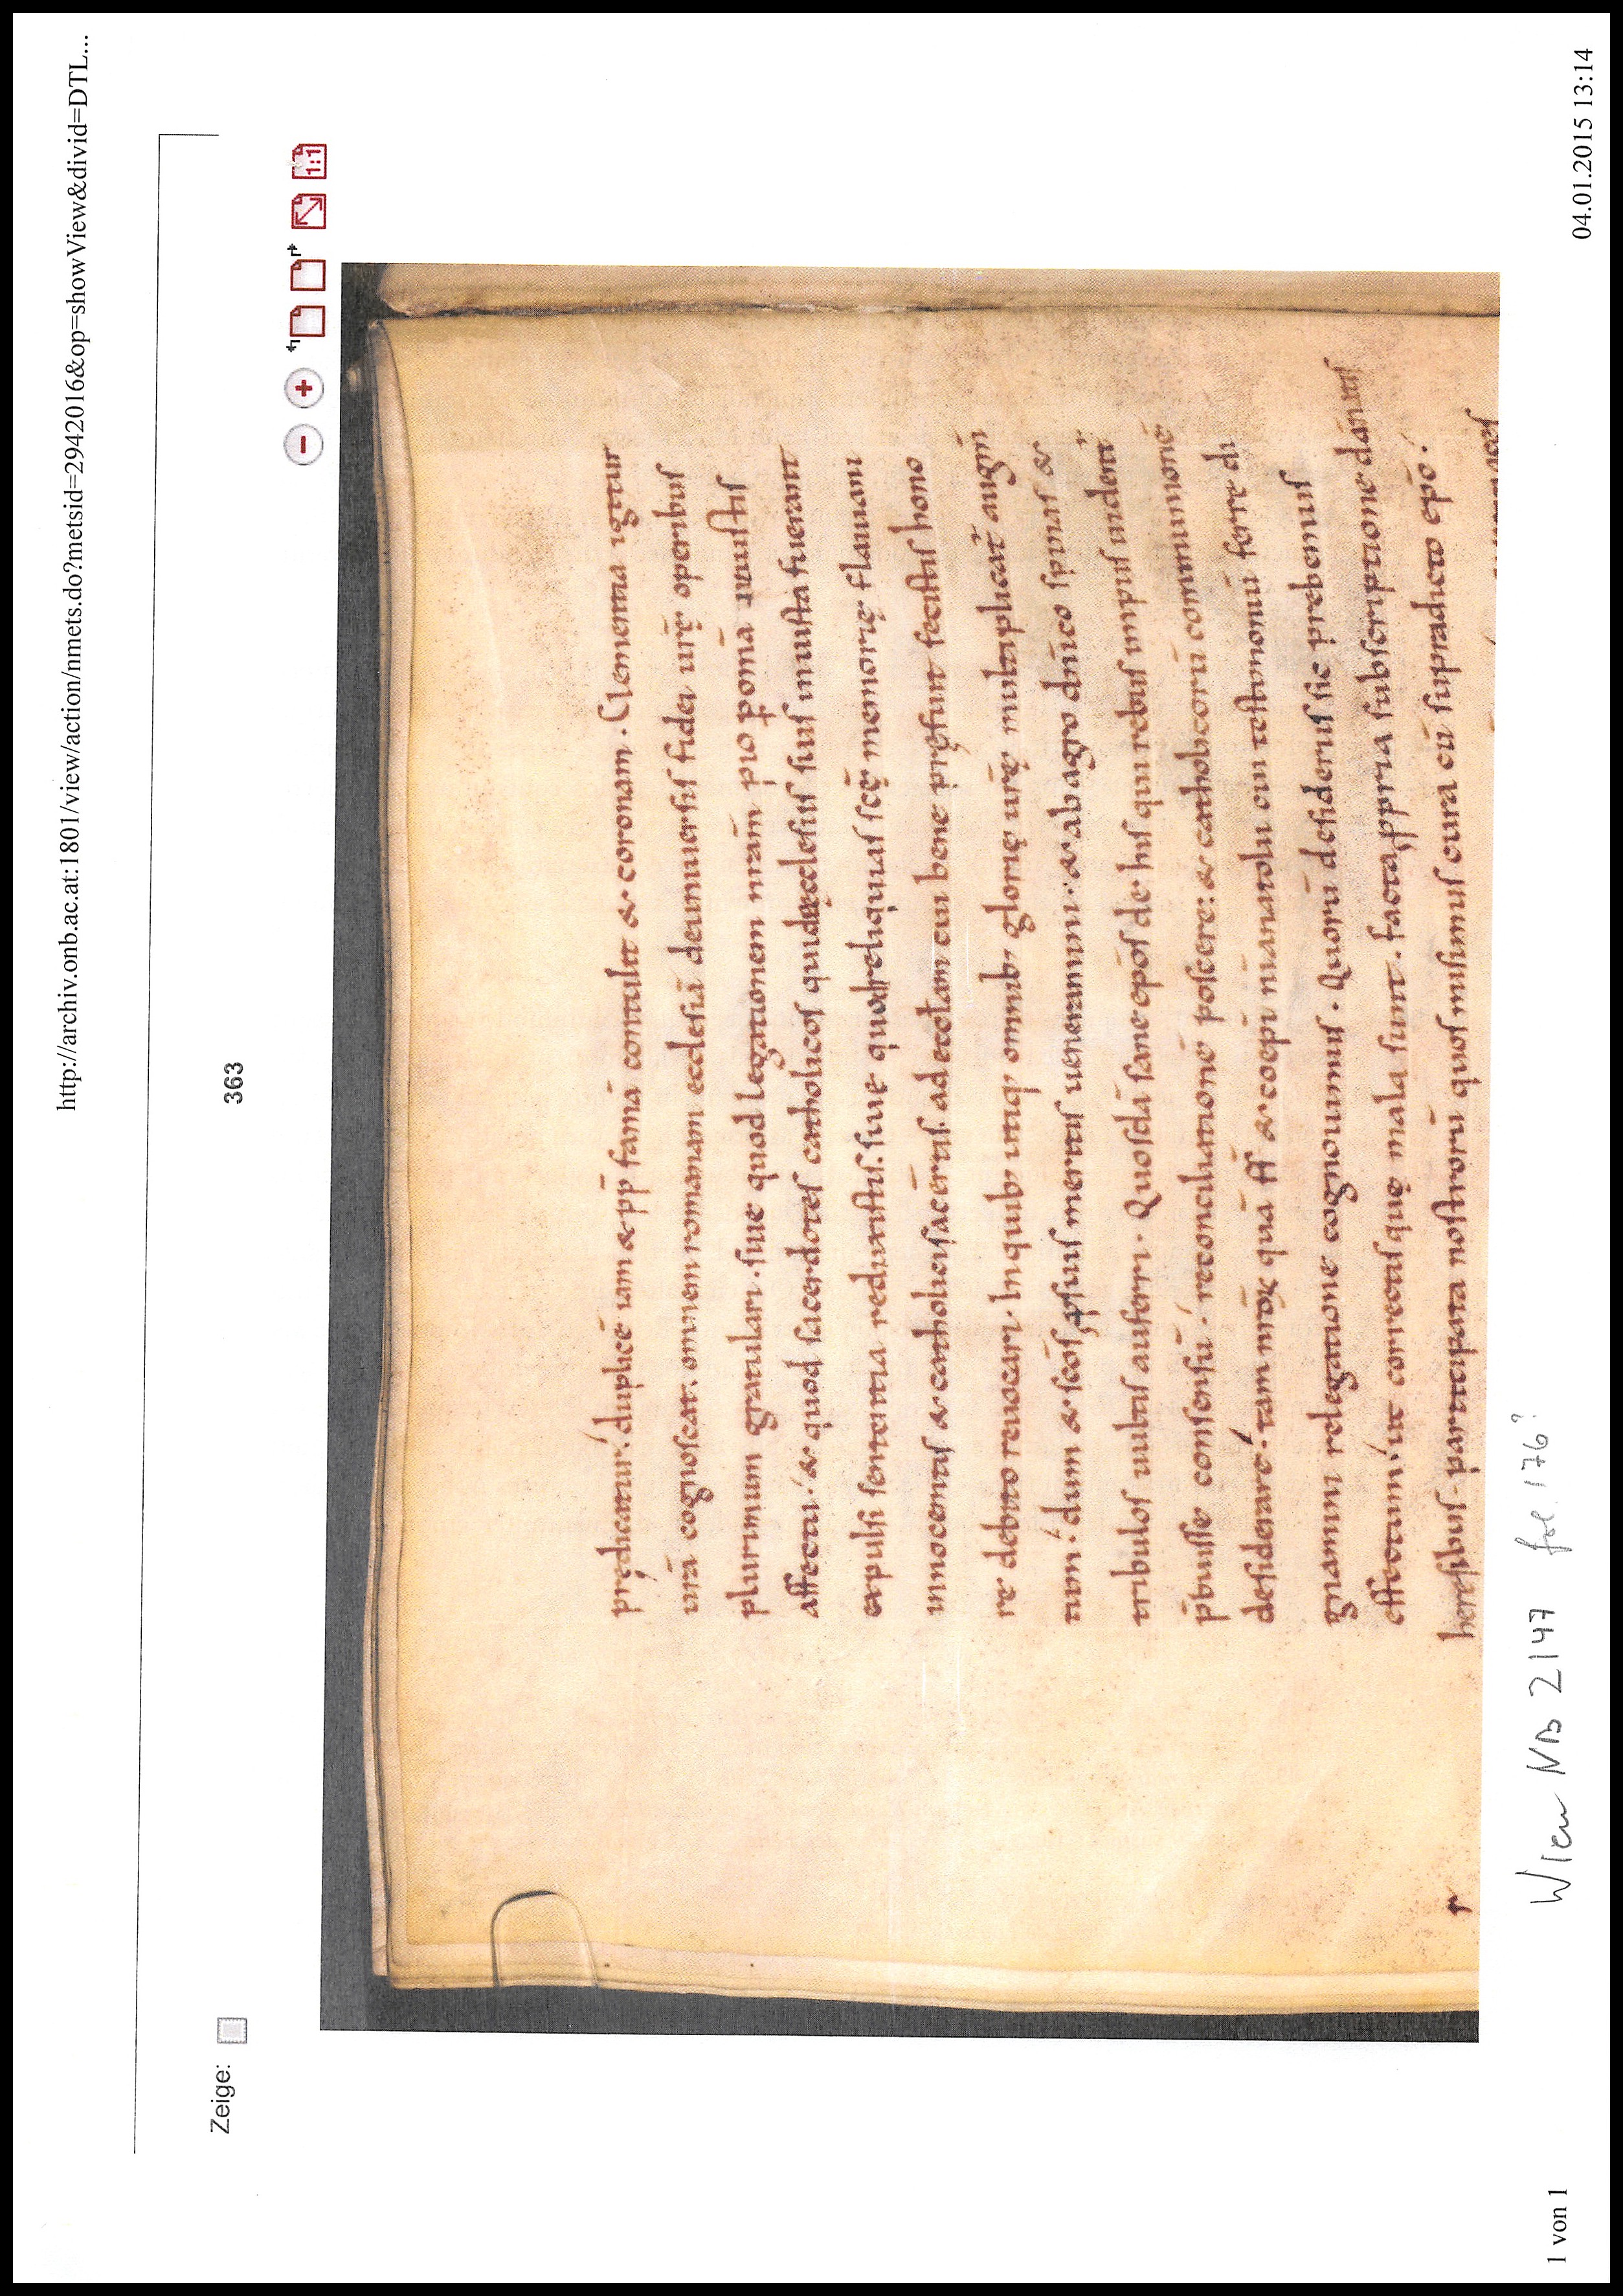 http://archiv.onb.ac.at:1801/view/action/nmets.do?metsid=2942016&op=showView&divid=DTL...
Zeige:
363
1:1
prędicatur. duplicē iam & pp̄ fama᷃ contulit & coronam. Clementia igitur
ur̄a cognoscat. omnem romanam ecclesiā deuniuersis fidei ur̄ę operibus
plurimum gratulari. siue quod Legationem nr̄am pio p̱ om̄ia iuuistis
affectu. & quod sacerdotes catholicos quidęcclesiis suis iniusta fuerant
expulsi sententia reduxistis. siue quodreliquias sc̄ę memorię flauiani
innocentis & catholicisacertis. ad ecctam cui bene pręfuit fecistis hono
re debito reuocari. Inquib; utiq; omnib; glorię ur̄ę multiplicat̄ augm̄
tum. dum & sc̄os ꝓsuis meritis ueneramini. & ab agro dn̄ico spinas &
tribulos uultis auferri. Quosdā sane ep̄os de his qui rebus impiis uident̄
p̄buisse consensū. reconciliationē poscere: & catholicorū communionē
desiderare. tam nr̄oꝝ quā ff̄ & coep̄i m̄i anatolii cui testimoniū ferre di
gnamini relegatione cognouimus. Quorū desideriis sic prebemus
effectum. ut correctis quę mala sunt. facta, ꝓpria subscriptione dānans
heresibus. participata nostrorū quos misimus cura cū supradicto ep̄o.
r
Wien NB 2147 fol. 176?
1 von 1
04.01.2015 13:14